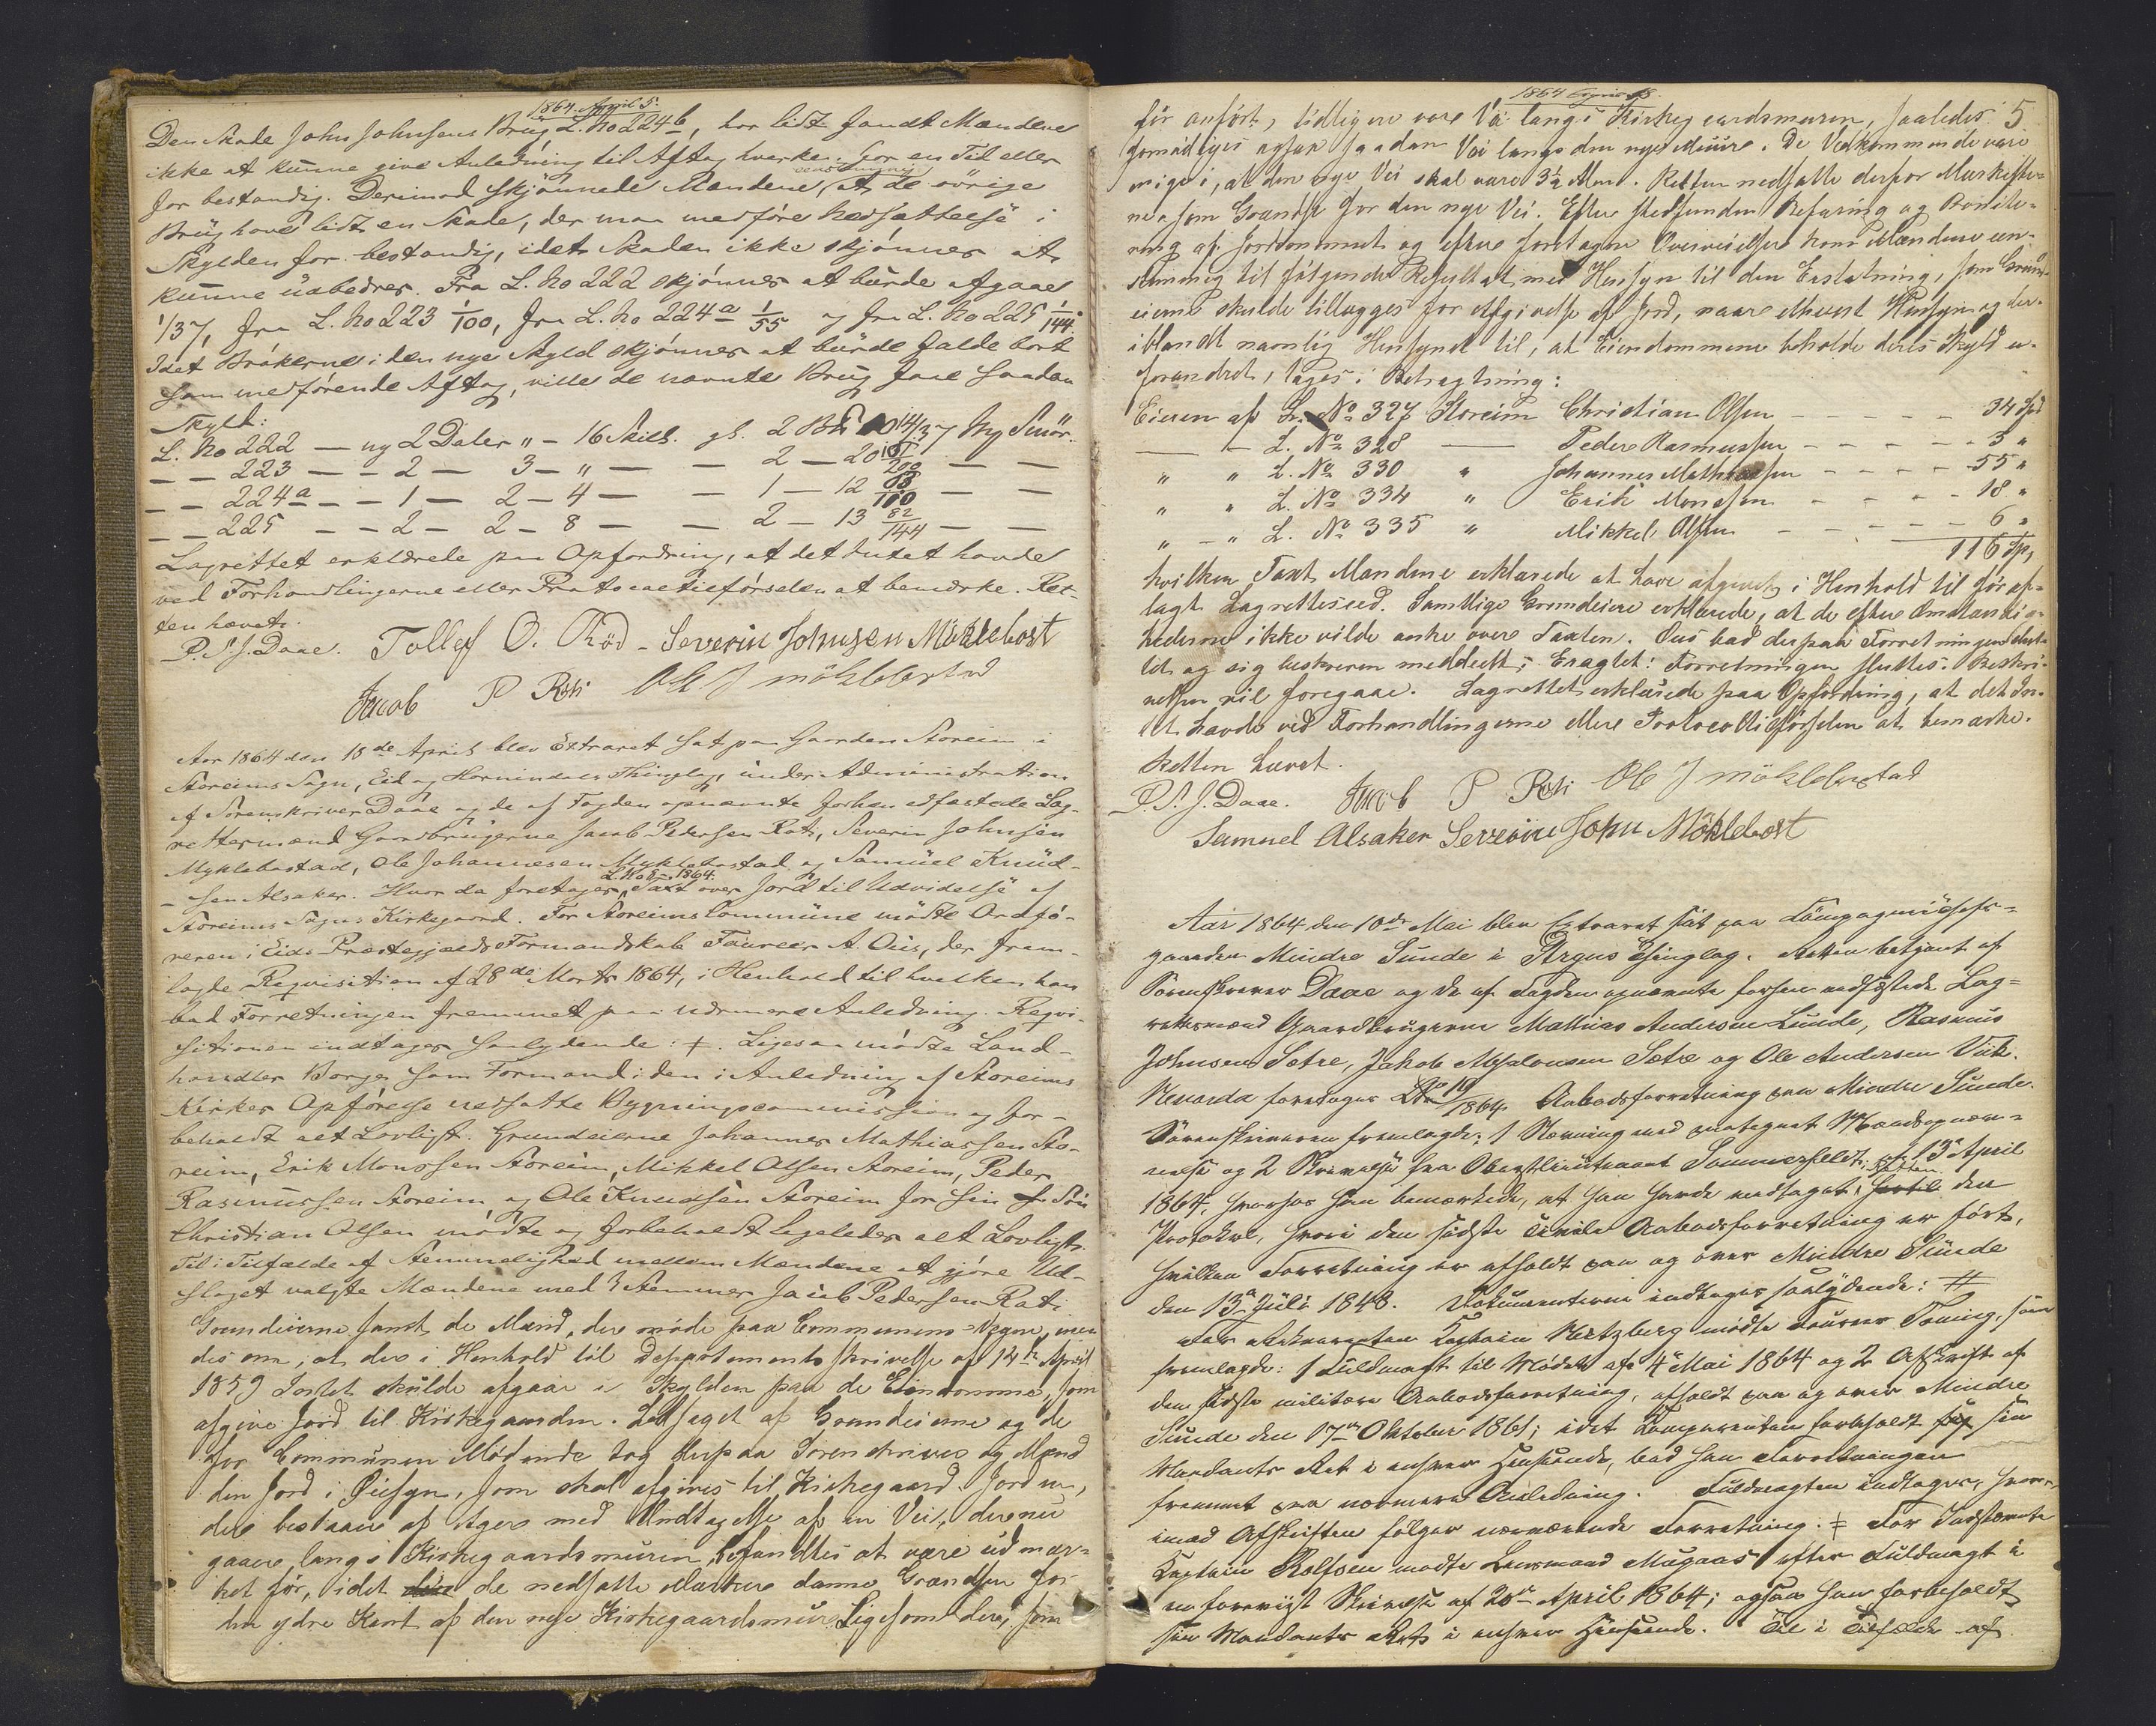 1864. April 5.
Den Skade John Johnsens Brug L. No 224b, har lidt fandt Mændene
ikke at kunne give Anledning til Aftag hverken for en Tid eller
for bestandig. Derimod skjønnede Mændene eenstemmig, at de øvrige
Brug have lidt en Skade, der maa medføre Nedsættelse i
Skylden for bestandig, idet Skaden ikke skjønnes at
kunne udbedres. Fra L. No 222 skjønnes at burde afgaae
1/37, fra L. No 223 1/100, fra L. No 224a 1/55 og fra L. No 225 1/144.
Idet Brøkerne i den nye Skyld skjønnes at burde falde bort
som medførende Aftag, ville de nævnte Brug faae saadan
Skyld:
L. No 222 — ny 2 Daler " – 16 Skill. gl. 2 14/37 Mg Smør.
— — 223 — — 2 — 3 — " — — 2 — 20 — —
— — 224a — — 1 — 2 — 4 — — 1 — 12 — —
— — 225 — — 2 — 2 — 8 — — 2 — 13 82/144 — —
Lagrettet erklærede paa Opfordring, at det Intet havde
ved Forhandlingerne eller Protocoltilførselen at bemærke. Ret-
ten hævet.
P. S. J. Daae. Tollef O. Rød - Severin Johnsen Möklebost
Jacob P Roti Ole J möklebostad
Aar 1864 den 18de April blev Extraret sat paa Gaarden Storeim i
Storeims Sogn, Eid og Hornindals Thinglag, under Administration
af Sorenskriver Daae og de af Fogden opnævnte forhen edfæstede Lag-
rettesmænd Gaardbrugerne Jacob Pedersen Roti, Severin Johnsen
Myklebostad, Ole Johannesen Myklebostad og Samuel Knud-
sen Alsaker. Hvor da foretages L. No 8 – 1864. Taxt over Jord til Udvidelse af
Storeims Sogns Kirkegaard. For Storeims Commune mødte Ordfø-
reren i Eids Præstegjælds Formandskab Foureer A. Ous, der frem-
lagde Requisition af 28de Marts 1864, i Henhold til hvilken han
bad Forretningen fremmet paa nærmere Anledning. Requi-
sitionen indtages saalydende: ǂ. Ligesaa mødte Land-
handler Borge, som Formand i den i Anledning af Storeims
Kirkes Opførelse nedsatte Bygningscommission og for-
beholdt alt Lovligt. Grundeierne Johannes Mathiassen Sto-
reim, Erik Monssen Storeim, Mikkel Olsen Storeim, Peder
Rasmussen Storeim og Ole Knudsen Storeim for sin Søn
Christian Olsen mødte og forbeholdt ligeledes alt Lovligt.
Til i Tilfælde af Stemmelighed mellem Mændene at gjøre Ud-
slaget valgte Mændene med 3 Stemmer Jacob Pedersen Roti.
Grundeierne samt de Mænd, der møde paa Communens Vegne, enedes
om, at der i Henhold til Departementsskrivelse af 14de April
1859 Intet skulde afgaae i Skylden paa de Eiendomme, som
afgive Jord til Kirkegaarden. Ledsaget af Grundeierne og de
for Communen Mødende tog derpaa Sorenskriver og Mænd
den Jord i Øiesyn, som skal afgives til Kirkegaard. Jorden,
der bestaaer af Ager med Undtagelse af en Vei, der nu
gaaer langs Kirkegaardsmuren, befandtes at være udmær-
ket før, idet de nedsatte Mærker danne Grændsen for
den ydre Kant af den nye Kirkegaardsmur. Ligesom der, som
1864 April 18.
5
før anført, tidligere var Vei langs Kirkegaardsmuren, saaledes
fornødiges ogsaa saadan Vei langs den nye Muur. De Vedkommende vare
enige i, at den nye Vei skal være 3½ Alen. Retten nedsatte derfor Mærkestene
som Grændse for den nye Vei. Efter stedfunden Befaring og Bonite-
ring af Jordsmonnet og efter foretagne Overveielser kom Mændene een-
stemmig til følgende Resultat med Hensyn til den Erstatning, som Grund-
eierne skulde tillægges for Afgivelse af Jord, naar ethvert Hensyn og der-
iblandt navnlig Hensynet til, at Eiendommene beholde deres Skyld u-
forandret, tages i Betragtning:
Eieren af L. No 327 Storeim Christian Olsen — — — — — 34 Spd
— — L. No 328 — Peder Rasmussen — — — — — 3 "
" " L. No 330 " Johannes Mathiassen — — — — 55 "
" " L. No 334 " Erik Monssen — — — — 18 "
" – " L. No 335 " Mikkel Olsen — — — — — 6 "
116 Spd,
hvilken Taxt Mændene erklærede at have afgivet i Henhold til før af-
lagt Lagrettesed. Samtlige Grundeiere erklærede, at de efter Omstændig-
hederne ikke vilde anke over Taxten. Ous bad derpaa Forretningen slut-
tet og sig beskreven meddeelt. Eragtet: Forretningen sluttes. Beskri-
velsen vil foregaae. Lagrettet erklærede paa Opfordring, at det In-
tet havde ved Forhandlingerne eller Protocoltilførselen at bemærke.
Retten hævet.
P. S. J. Daae. Jacob P Roti Ole J möklebostad
Samuel Alsaker Severin John Möklebost
Aar 1864 den 10de Mai blev Extraret sat paa Compagnichefs-
gaarden Mindre Sunde i Stryns Thinglag. Retten betjent af
Sorenskriver Daae og de af Fogden opnævnte forhen edfæstede Lag-
rettesmænd Gaardbrugerne Mathias Andersen Sunde, Rasmus
Johnsen Sætre, Jakob Absalonsen Sætre og Ole Andersen Viik.
Hvor da foretages No 10/1864 Aabodsforretning paa Mindre Sunde.
Sorenskriveren fremlagde: 1 Stævning med paategnet Mandsopnæv-
nelse og 2 Skrivelse fra Oberstlieutenant Sommerfeldt af 13de April
1864, hvorhos han bemærkede, at han havde medtaget i Retten den
Protokol, hvori den sidste civile Aabodsforretning er ført,
hvilken Forretning er afholdt paa og over Mindre Sunde
den 13de Juli 1848. Dokumenterne indtages saalydende: #
For Rekvirenten Kaptein Hertzberg mødte Foureer Toning, som
fremlagde: 1 Fuldmagt til Mødet af 4de Mai 1864 og 2 Afskrift af
den sidste militære Aabodsforretning, afholdt paa og over Mindre
Sunde den 17de Oktober 1861; idet Komparenten forbeholdt sin
Mandants Ret i enhver Henseende, bad han Forretningen
fremmet paa nærmere Anledning. Fuldmagten indtages, hvor-
imod Afskriften følger nærværende Forretning. ǂ For Indstævnte
Kaptein Rolfsen mødte Lensmand Mugaas efter Fuldmagt i
en foreviist Skrivelse af 20de April 1864; ogsaa han forbeholdt
sin Mandants Ret i enhver Henseende. Til i Tilfælde af